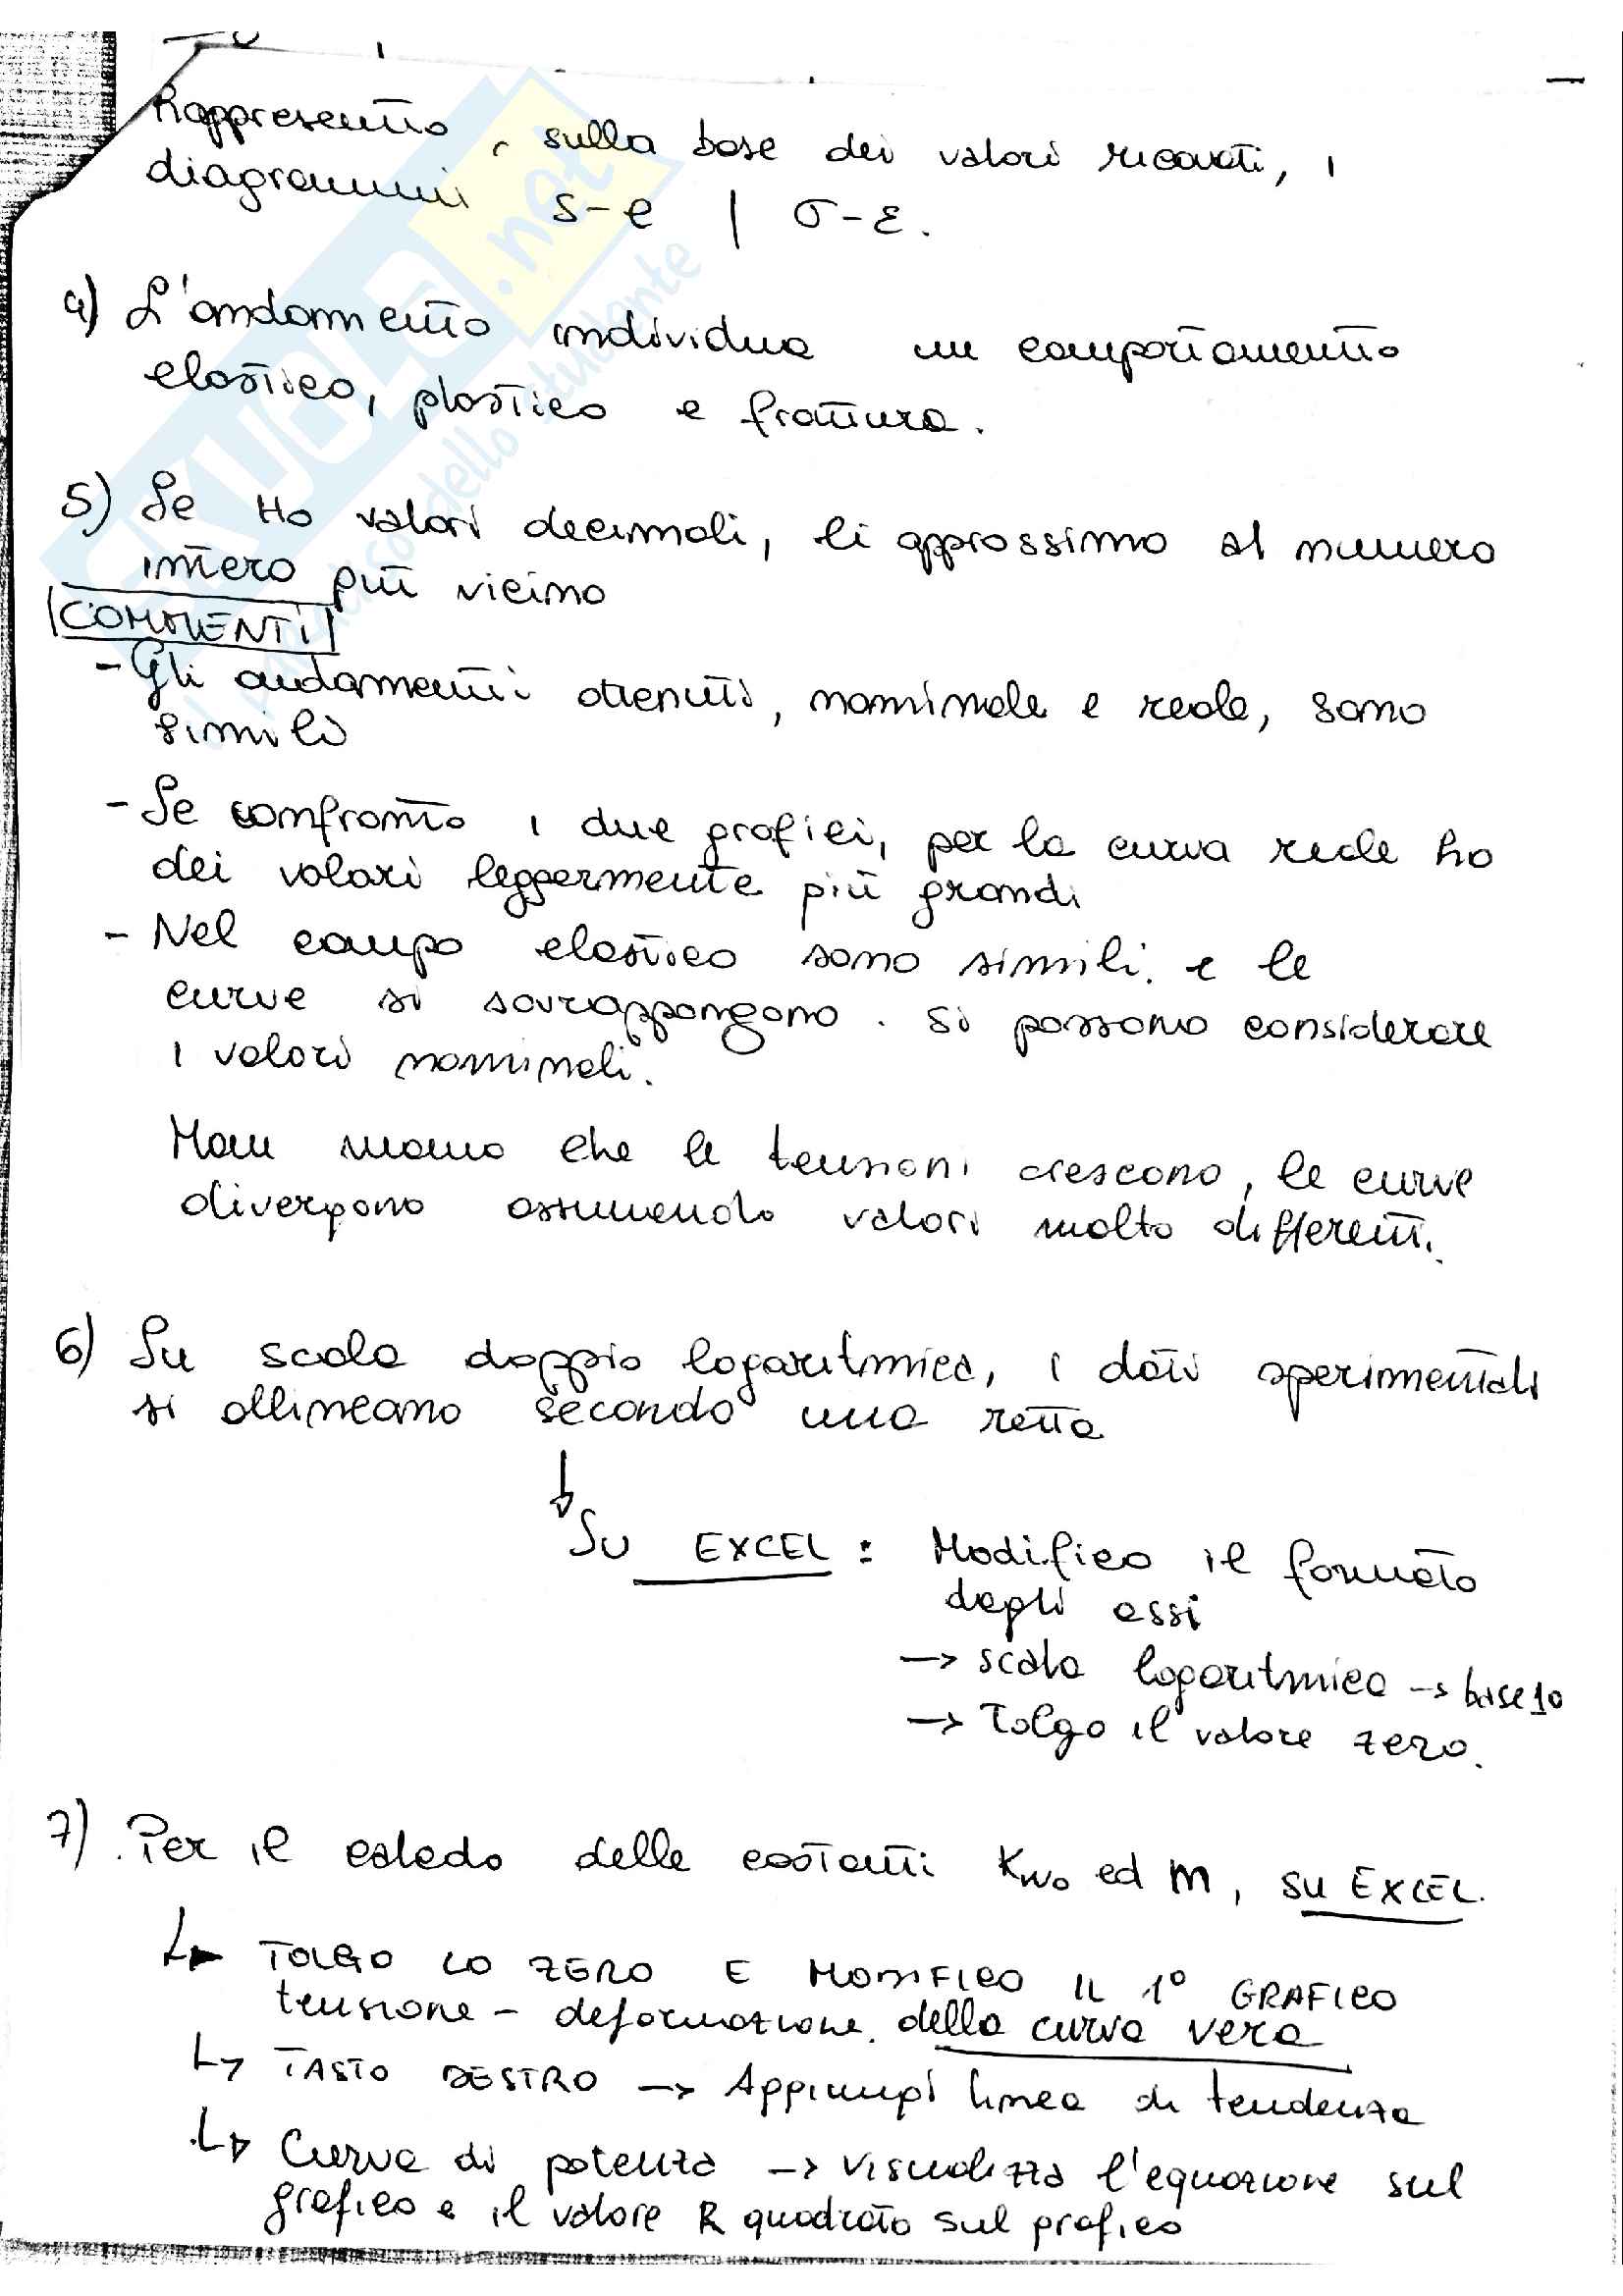 Rappresento, sulla base dei valori ricavati, i
diagrammi s-e | σ-ε.
4) L'andamento individua un comportamento
elastico, plastico e frattura.
5) Se ho valori decimali, li approssimo al numero
intero più vicino
COMMENTI
- Gli andamenti ottenuti, nominale e reale, sono
simili
- Se confronto i due grafici, per la curva reale ho
dei valori leggermente più grandi
- Nel campo elastico sono simili e le
curve si sovrappongono. Si possono considerare
i valori nominali.
Man mano che le tensioni crescono, le curve
divergono assumendo valori molto differenti.
6) Su scala doppio logaritmica, i dati sperimentali
si allineano secondo una retta
↓
Su EXCEL: Modifico il formato
degli assi
→ scala logaritmica → base 10
→ Tolgo il valore zero.
7) Per il calcolo delle costanti ed m, su EXCEL.
↳ TOLGO LO ZERO E MODIFICO IL 1° GRAFICO
tensione - deformazione della curva vera
↳ TASTO DESTRO → Aggiungi linea di tendenza
↳ Curva di potenza → visualizza l'equazione sul
grafico e il valore R quadrato sul grafico
SKUOLA.net
il paradiso dello studente